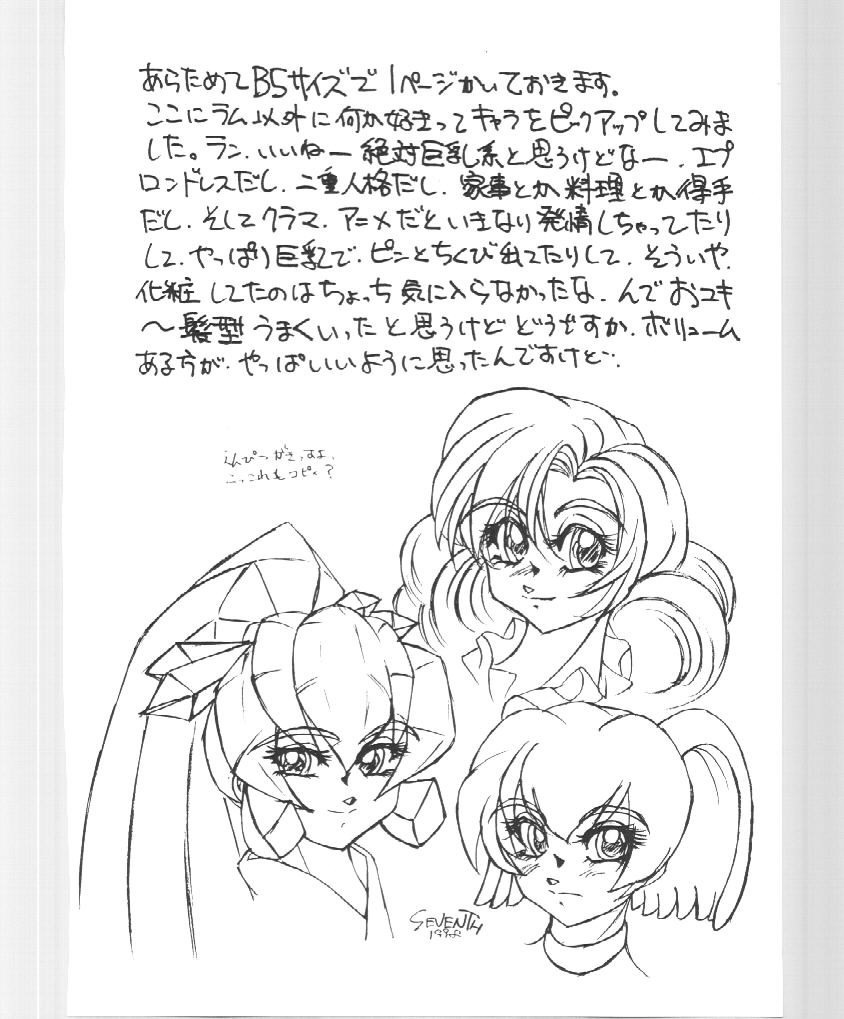 あらためてB5サイズで1ページかいておきます。
ここにラム以外に何か好きってキャラをピックアップしてみま
した。ラン、いいねー 絶対巨乳系と思うけどなー、エプ
ロンドレスだし、二重人格だし、家事とか料理とか得手
だし、そしてクラマ、アニメだといきなり発情しちゃってたり
して、やっぱり巨乳で、ピンとちくび出てたりして、そういや、
化粧してたのはちょっち気に入らなかったな、んでおユキ
〜髪型うまくいったと思うけどどうですか、ボリューム
ある方が、やっぱいいように思ったんですけど…
えんぴつがきっすよ、
こっこれもコピィ?
SEVENTH